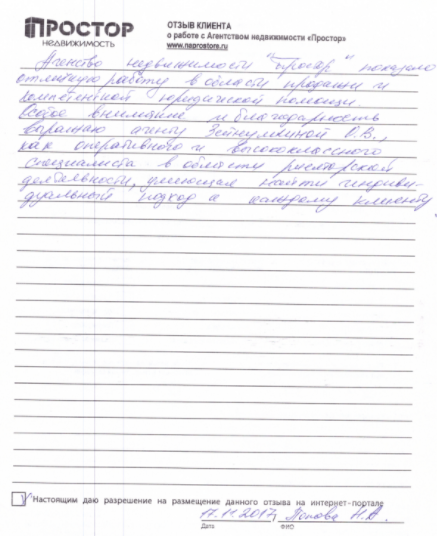 ПРОСТОР
НЕДВИЖИМОСТЬ
ОТЗЫВ КЛИЕНТА
о работе с Агентством недвижимости «Простор»
www.naprostore.ru
Агенство недвижимости "Простор" показало
отличную работу в области продажи и
компетентной юридической помощи.
Особое внимание и благодарность
выражаю агенту О.В.,
как оперативного и высококлассного
специалиста в области риэлторской
деятельности, умеющая найти индиви-
дуальный подход к каждому клиенту
Настоящим даю разрешение на размещение данного отзыва на интернет-портале
17.11.2017, Попова Н.А.
Дата ФИО